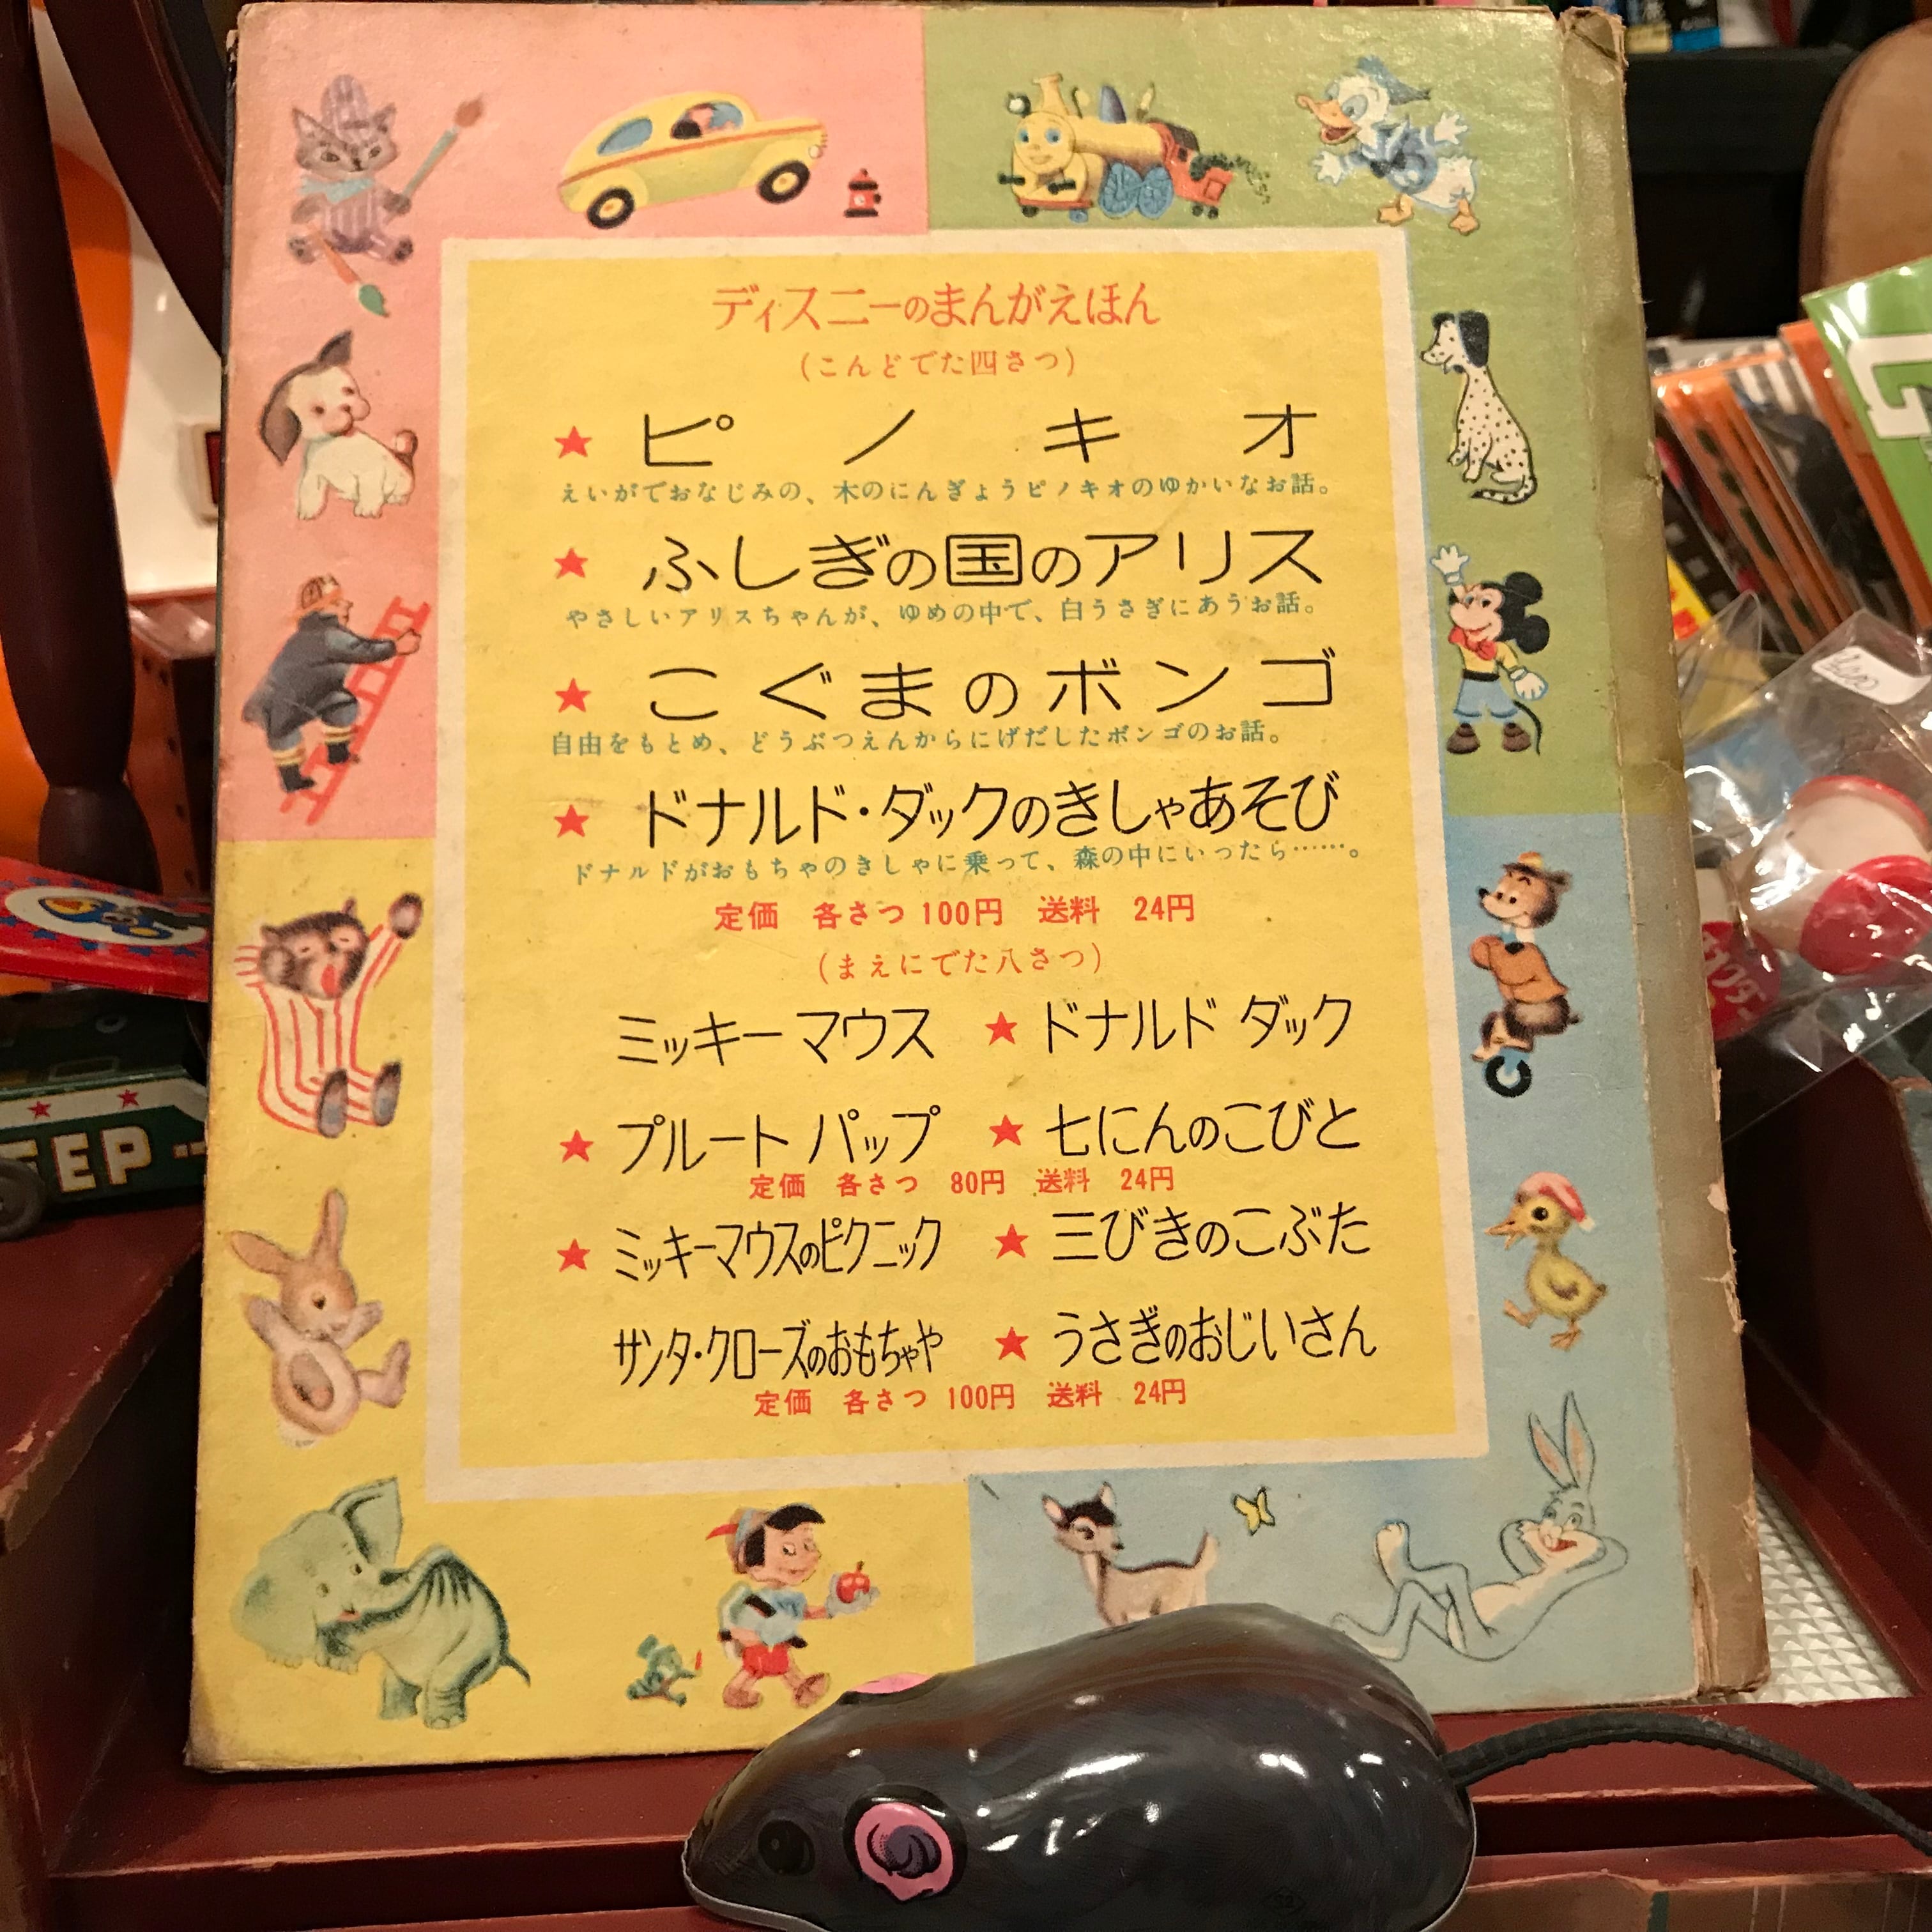 ディズニーのまんがえほん
(こんどでた四さつ)
★ ピノキオ
えいがでおなじみの、木のにんぎょうピノキオのゆかいなお話。
★ ふしぎの国のアリス
やさしいアリスちゃんが、ゆめの中で、白うさぎにあうお話。
★ こぐまのボンゴ
自由をもとめ、どうぶつえんからにげだしたボンゴのお話。
★ ドナルド・ダックのきしゃあそび
ドナルドがおもちゃのきしゃに乗って、森の中にいったら……。
定価 各さつ 100円 送料 24円
(まえにでた八さつ)
ミッキーマウス ★ ドナルド ダック
★ プルート パップ ★ 七にんのこびと
定価 各さつ 80円 送料 24円
★ ミッキーマウスのピクニック ★ 三びきのこぶた
サンタ・クローズのおもちゃや ★ うさぎのおじいさん
定価 各さつ 100円 送料 24円
EEP